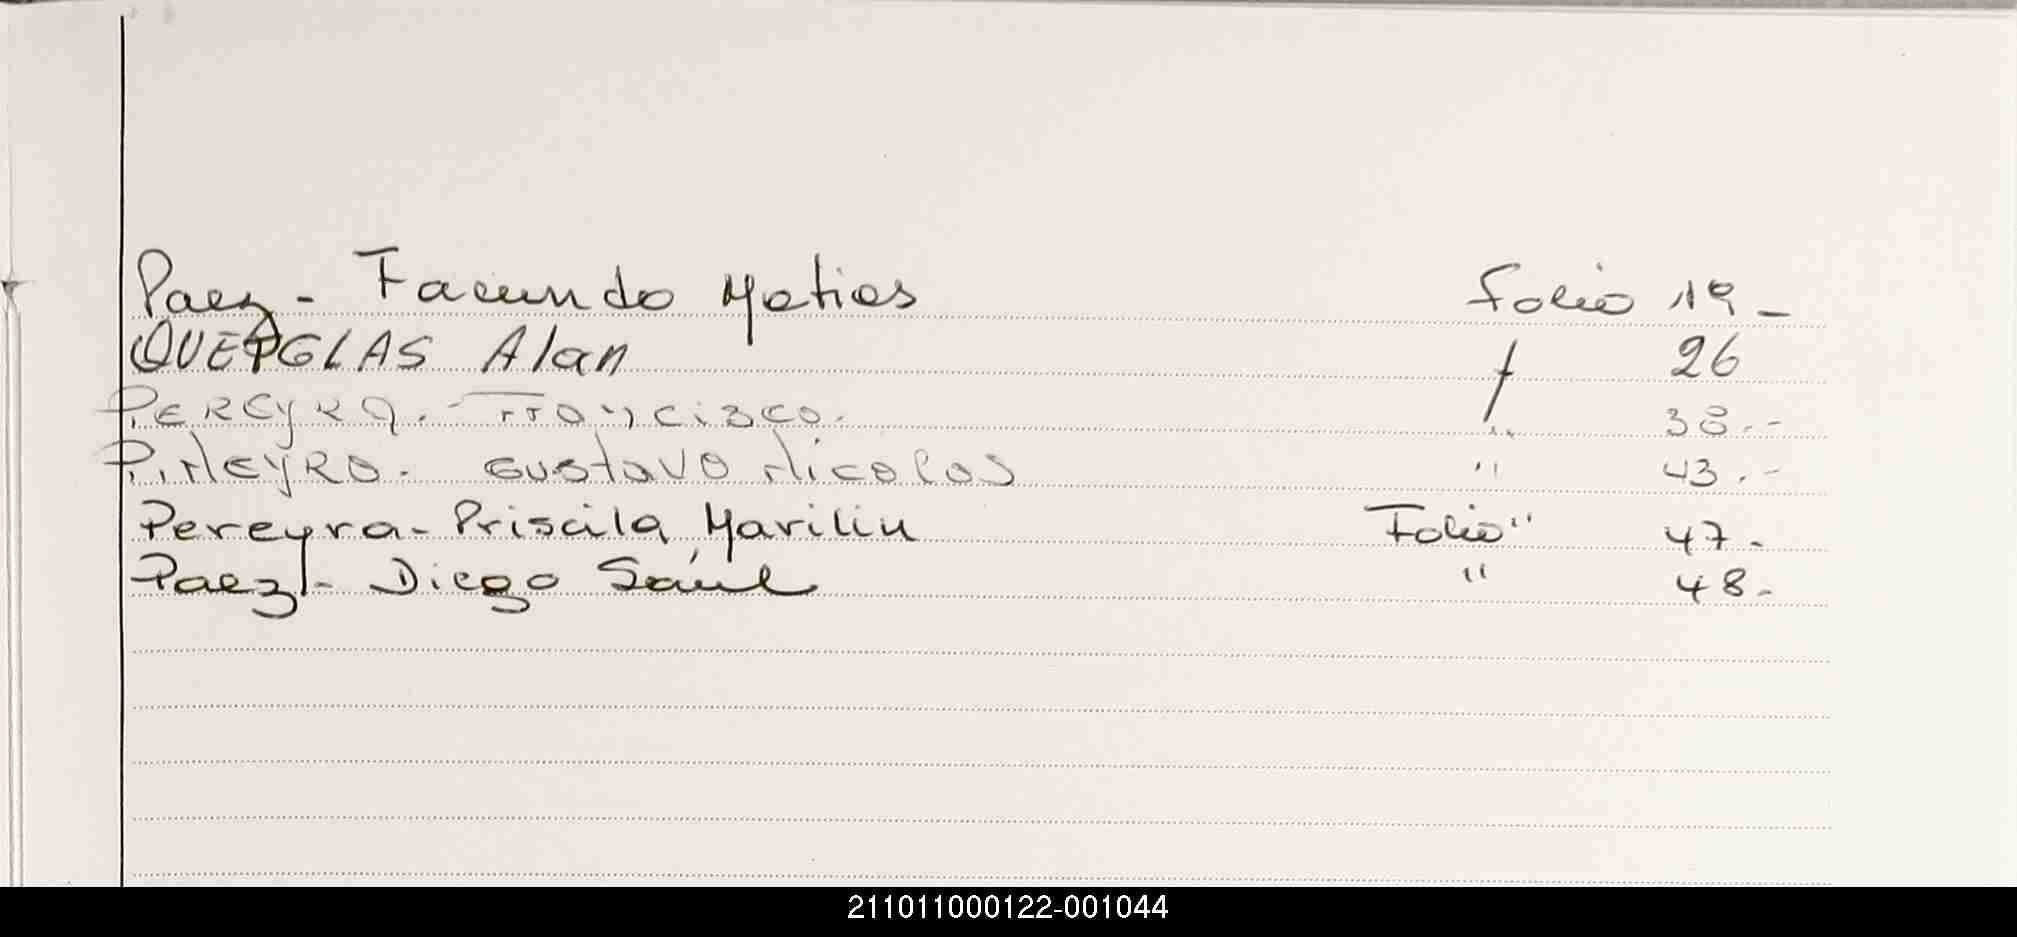 Paez - Facundo Matias Folio 19 -
QUERGLAS Alan f 26
PEREyRA. - Francisco. " 38.-
PiÑEyRO. GUSTAVO Nicolas " 43.-
Pereyra - Priscila Marilin Folio " 47 -
Paez - Diego Saúl " 48 -
211011000122-001044